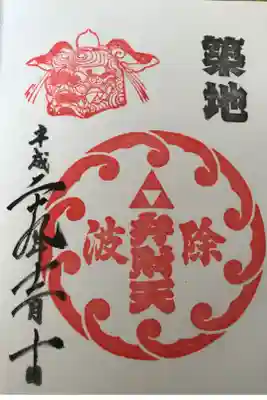 築地
波除
弁財天
平成二十九年十一月十日